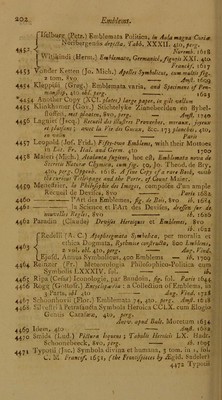 202 Emblems.
Isselburg (Pet.) Emblemata Politica, in Aula magna Curiæ
Noribergensis depicta, Tabb, XXXII. 4to, perg.
4452 Norimb. 1618
Wittiansii (Herm.) Emblemata, Germanicè, figuris XXI. 4to
Francf. 1617
4453 Vander Ketten (Jo. Mich.) Apelles Symbolicus, cum multis fig.
2 tom. 8vo Amst. 1699
4454 Kleppisii (Greg.) Emblemata varia, and Specimen of Penmanship,
obl. 4to, perg. 1623
*4454 Another Copy (XCI. plates) large paper, in pile vellum
4455 Klinkhamer (Gov.) Stichtelyke Zinnebeelden en Bybelstoffen,
met plaaten, 8vo, perg. Amst. 1740
4456 Lagniet (Jaq.) Recueil des illustres Proverbes, moraux, joyeux
et plaisans; avec la Vie des Gueux, &c. 173 planches, 4to,
en veau Paris
4457 Leopold (Jos. Frid.) Fifty-two Emblems, with their Mottoes
in Eng. Fr. Ital. and Germ. 4to 1700
4458 Maieri (Mich.) Atalanta fugiens, hoc est, Emblemata nova de
Secretis Naturæ Chymica, cum fig. 50, Jo. Theod. de Bry,
4to, perg. Oppenh. 1618. A fine Copy of a rare Book, with
the curious Titlepage and the Portr. of Count Maier.
4459 Menestrier, la Philosophie des Images, composée d'un ample
Recueil de Devises, 8vo Paris 1682
4460 —— l'Art des Emblemes, fig. de Bois, 8vo ib. 1684
4461 —— la Science et l'Art des Devises, dressez sur de
nouvelles Regles, 8vo ib. 1686
4462 Paradin (Claude) Devises Heroiques et Emblemes, 8vo
ib. 1614
4463 Redelii (A. C.) Apophtegmata Symbolica, per moralia et
ethica Dogmata, Rythmice conscripta, 800 Emblems,
2 vol. obl. 4to, perg. Aug. Vind.
Ejusd. Annus Symbolicus, 400 Emblems ib. 1695
4464 Reinzer (Fr.) Meteorologia Philosophico-Politica cum
Symbolis LXXXIV. fol. ib.
4465 Ripa (César) Iconologie, par Baudoin, fig. fol. Paris 1644
4466 Rogg (Gottofr.) Encyclopædia: a Collection of Emblems, in
3 Parts, obl. 4to Aug. Vind. 1718
4467 Schoonhovii (Flor.) Emblemata 74, 4to, perg. Amst. 1618
4468 Silvestri à Petrasancta Symbola Heroica CCLX. cum Elogiis
Geniis Cæsareæ, 4to, perg.
Antv. apud Balt. Moretum 1634
4469 Idem, 4to Amst. 1682
4470 Strada (Lud.) Pictura loquens; Tabulis Heroicis LX. Hadr.
Schoonebeeck, 8vo, perg. ib. 1695
4471 Typotii (Jac.) Symbola divina et humana, 3 tom. in 1, sub
C. M. Francof. 1652, (the Frontispieces by Ægid. Sadeler)
4472 Typotii